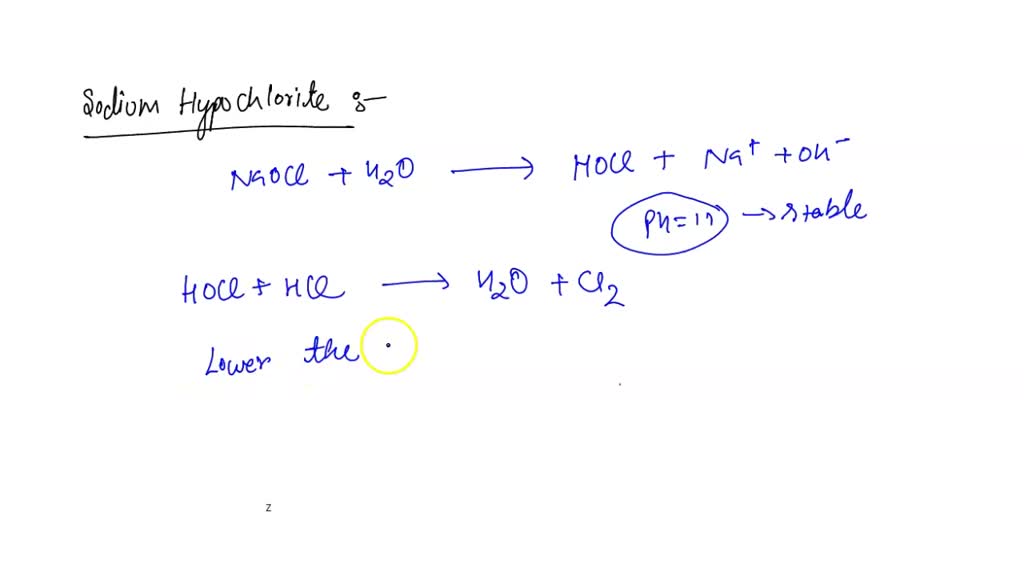 Sodium Hypochlorite :-
NaOCl + H2O → HOCl + Na+ + OH-
PH = 11 → stable
HOCl + HCl → H2O + Cl2
Lower the
z